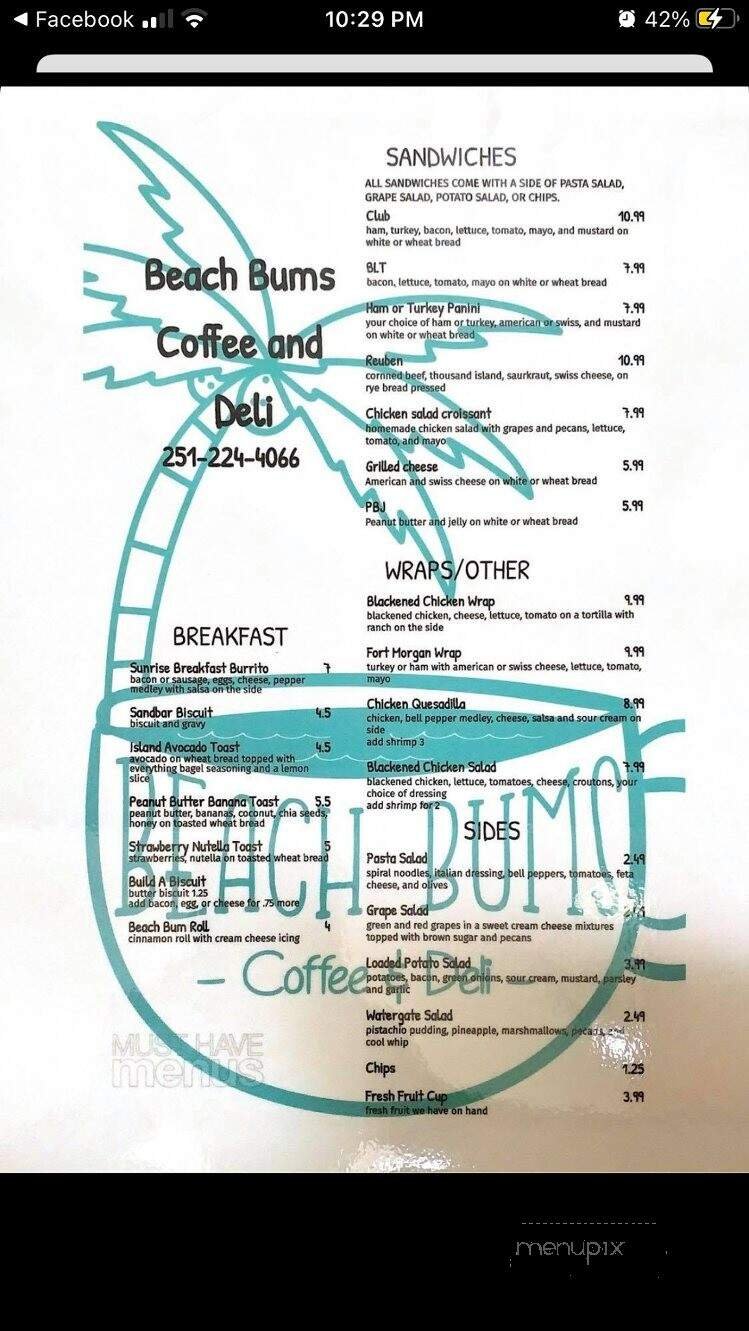 Facebook
10:29 PM
42%
SANDWICHES
ALL SANDWICHES COME WITH A SIDE OF PASTA SALAD,
GRAPE SALAD, POTATO SALAD, OR CHIPS.
Club 10.99
ham, turkey, bacon, lettuce, tomato, mayo, and mustard on
white or wheat bread
BLT 7.99
bacon, lettuce, tomato, mayo on white or wheat bread
Ham or Turkey Panini 7.99
your choice of ham or turkey, american or swiss, and mustard
on white or wheat bread
Reuben 10.99
cornned beef, thousand island, saurkraut, swiss cheese, on
rye bread pressed
Chicken salad croissant 7.99
homemade chicken salad with grapes and pecans, lettuce,
tomato, and mayo
Grilled cheese 5.99
American and swiss cheese on white or wheat bread
PBJ 5.99
Peanut butter and jelly on white or wheat bread
WRAPS/OTHER
Blackened Chicken Wrap 9.99
blackened chicken, cheese, lettuce, tomato on a tortilla with
ranch on the side
Fort Morgan Wrap 9.99
turkey or ham with american or swiss cheese, lettuce, tomato,
mayo
Chicken Quesadilla 8.99
chicken, bell pepper medley, cheese, salsa and sour cream on
side
add shrimp 3
Blackened Chicken Salad 7.99
blackened chicken, lettuce, tomatoes, cheese, croutons, your
choice of dressing
add shrimp for 2
SIDES
Pasta Salad 2.49
spiral noodles, italian dressing, bell peppers, tomatoes, feta
cheese, and olives
Grape Salad
green and red grapes in a sweet cream cheese mixtures
topped with brown sugar and pecans
Loaded Potato Salad 3.99
potatoes, bacon, green onions, sour cream, mustard, parsley
and garlic
Watergate Salad 2.49
pistachio pudding, pineapple, marshmallows, pecans, and
cool whip
Chips 1.25
Fresh Fruit Cup 3.99
fresh fruit we have on hand
Beach Bums
Coffee and
Deli
251-224-4066
BREAKFAST
Sunrise Breakfast Burrito 7
bacon or sausage, eggs, cheese, pepper
medley with salsa on the side
Sandbar Biscuit 4.5
biscuit and gravy
Island Avocado Toast 4.5
avocado on wheat bread topped with
everything bagel seasoning and a lemon
slice
Peanut Butter Banana Toast 5.5
peanut butter, bananas, coconut, chia seeds,
honey on toasted wheat bread
Strawberry Nutella Toast 5
strawberries, nutella on toasted wheat bread
Build A Biscuit
butter biscuit 1.25
add bacon, egg, or cheese for .75 more
Beach Bum Roll 4
cinnamon roll with cream cheese icing
BEACH BUMS
- Coffee & Deli -
MUST HAVE
menus
menupix